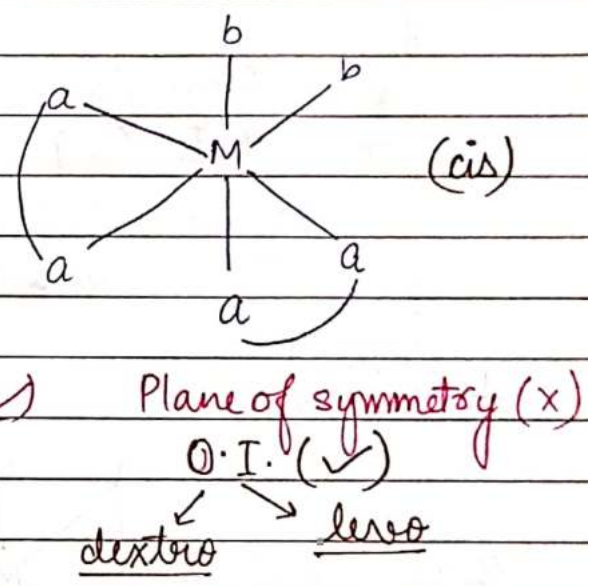 b
b
a
M
(cis)
a
a
a
Plane of symmetry (×)
O.I. (✓)
dextro levo